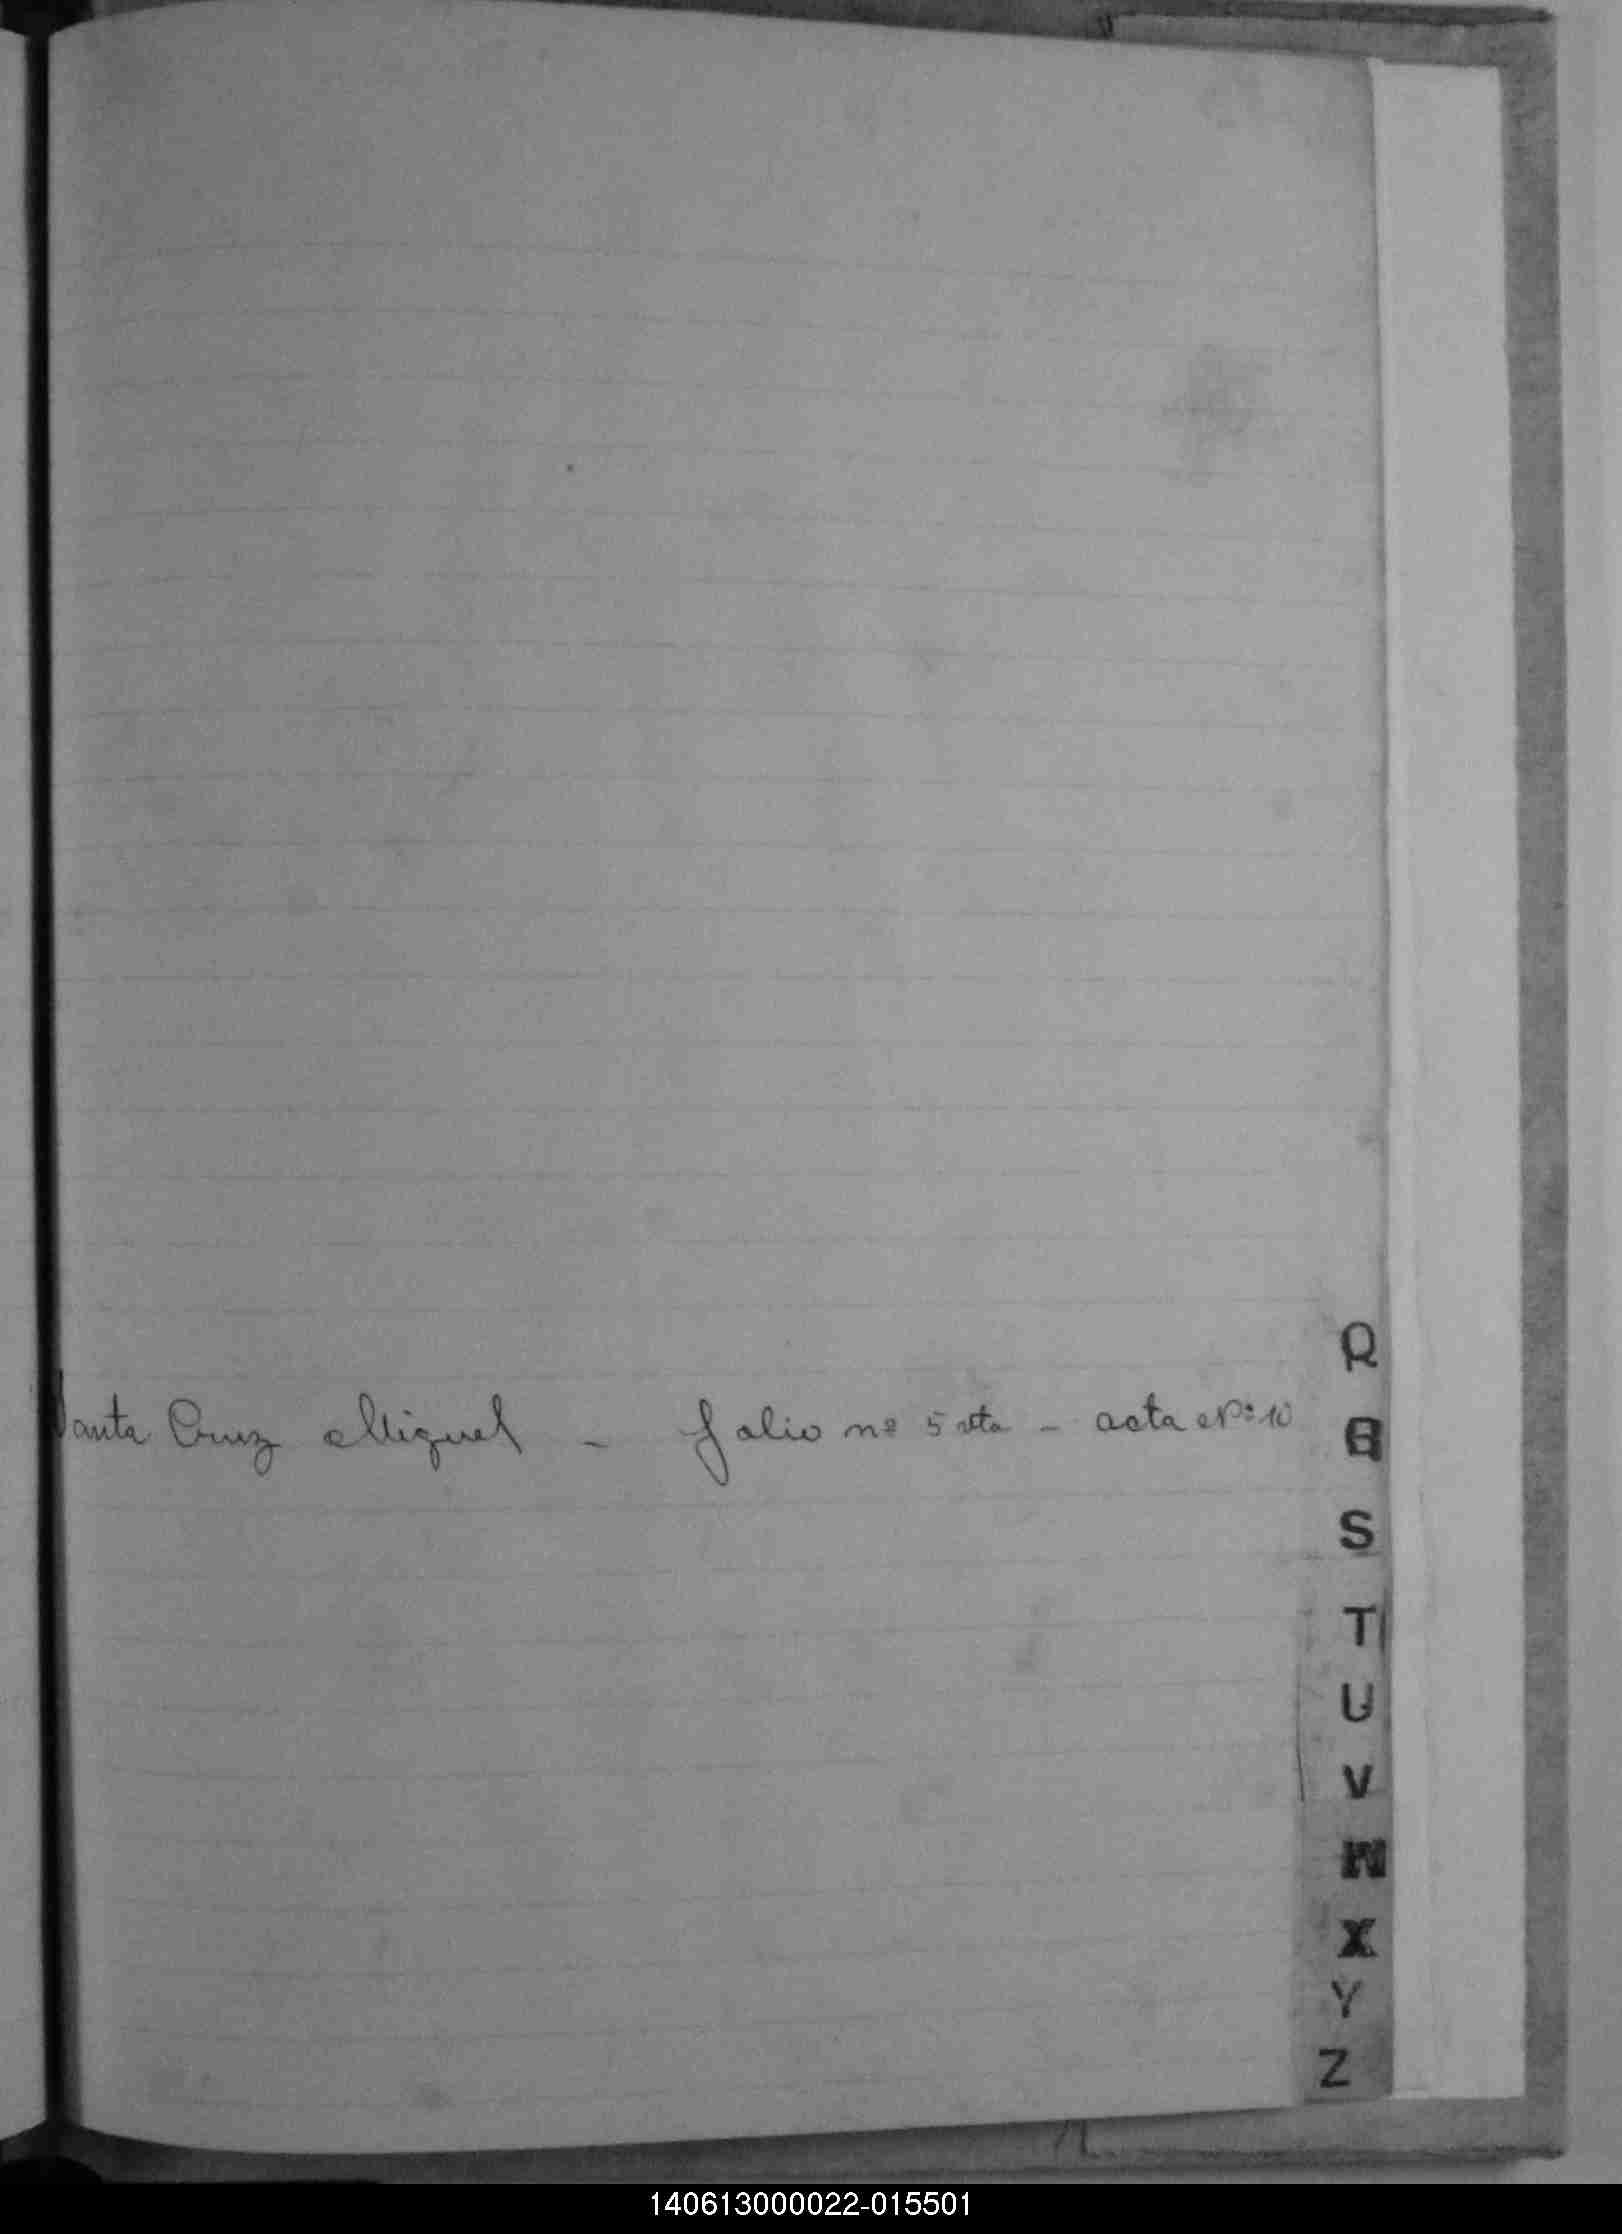 Santa Cruz Miguel - folio nº 5 vta - acta Nº 10
R
S
T
U
V
X
Y
Z
140613000022-015501